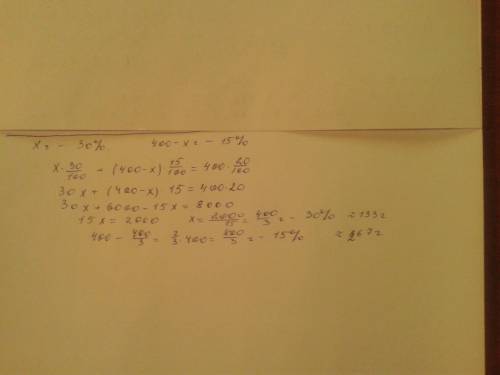 x г - 30%   400-x г - 15%
x·30/100 + (400-x) 15/100 = 400·20/100
30x + (400-x) 15 = 400·20
30x + 6000 - 15x = 8000
15x = 2000   x = 2000/15 = 400/3 г - 30% ≈ 133 г
400 - 400/3 = 2/3·400 = 800/3 г - 15% ≈ 267 г